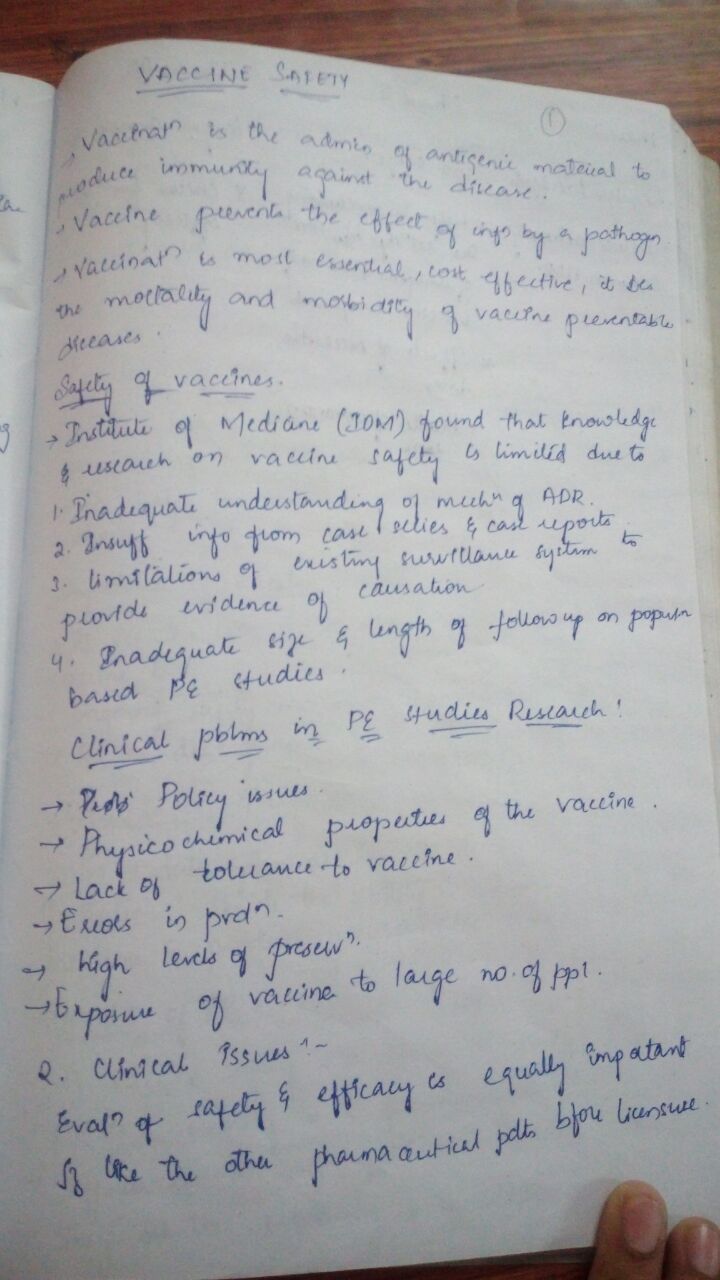 VACCINE SAFETY
①
→ Vaccinatn is the admin of antigenic material to
produce immunity against the disease.
→ Vaccine prevents the effect of infn by a pathogen
→ Vaccinatn is most essential, cost effective, it
the mortality and morbidity of vaccine preventable
diseases.
Safety of vaccines.
→ Institute of Medicine (IOM) found that knowledge
& research on vaccine safety is limited due to
1. Inadequate understanding of mechn of ADR.
2. Insuff info from case series & case reports
3. limitations of existing survillance system to
provide evidence of causation
4. Inadequate size & length of follow up on populn
based PE studies.
Clinical pblms in PE studies Research:
→ Policy issues.
→ Physicochemical properties of the vaccine.
→ Lack of tolerance to vaccine.
→ Errors in prdn.
→ high levels of preservn.
→ Exposure of vaccine to large no. of ppl.
2. Clinical Issues :-
Evaln of safety & efficacy is equally important
like the other pharmaceutical pdts bfore licensure.